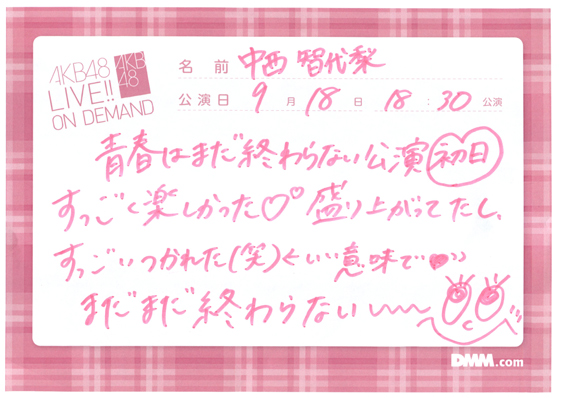 AKB48
LIVE!!
ON DEMAND
AKB
48
名前 中西智代梨
公演日 9月18日 18:30公演
青春はまだ終わらない公演初日
すっごく楽しかった♡♡盛り上がってたし、
すっごいつかれた(笑)<いい意味で♥
まだまだ終わらない〜
DMM.com